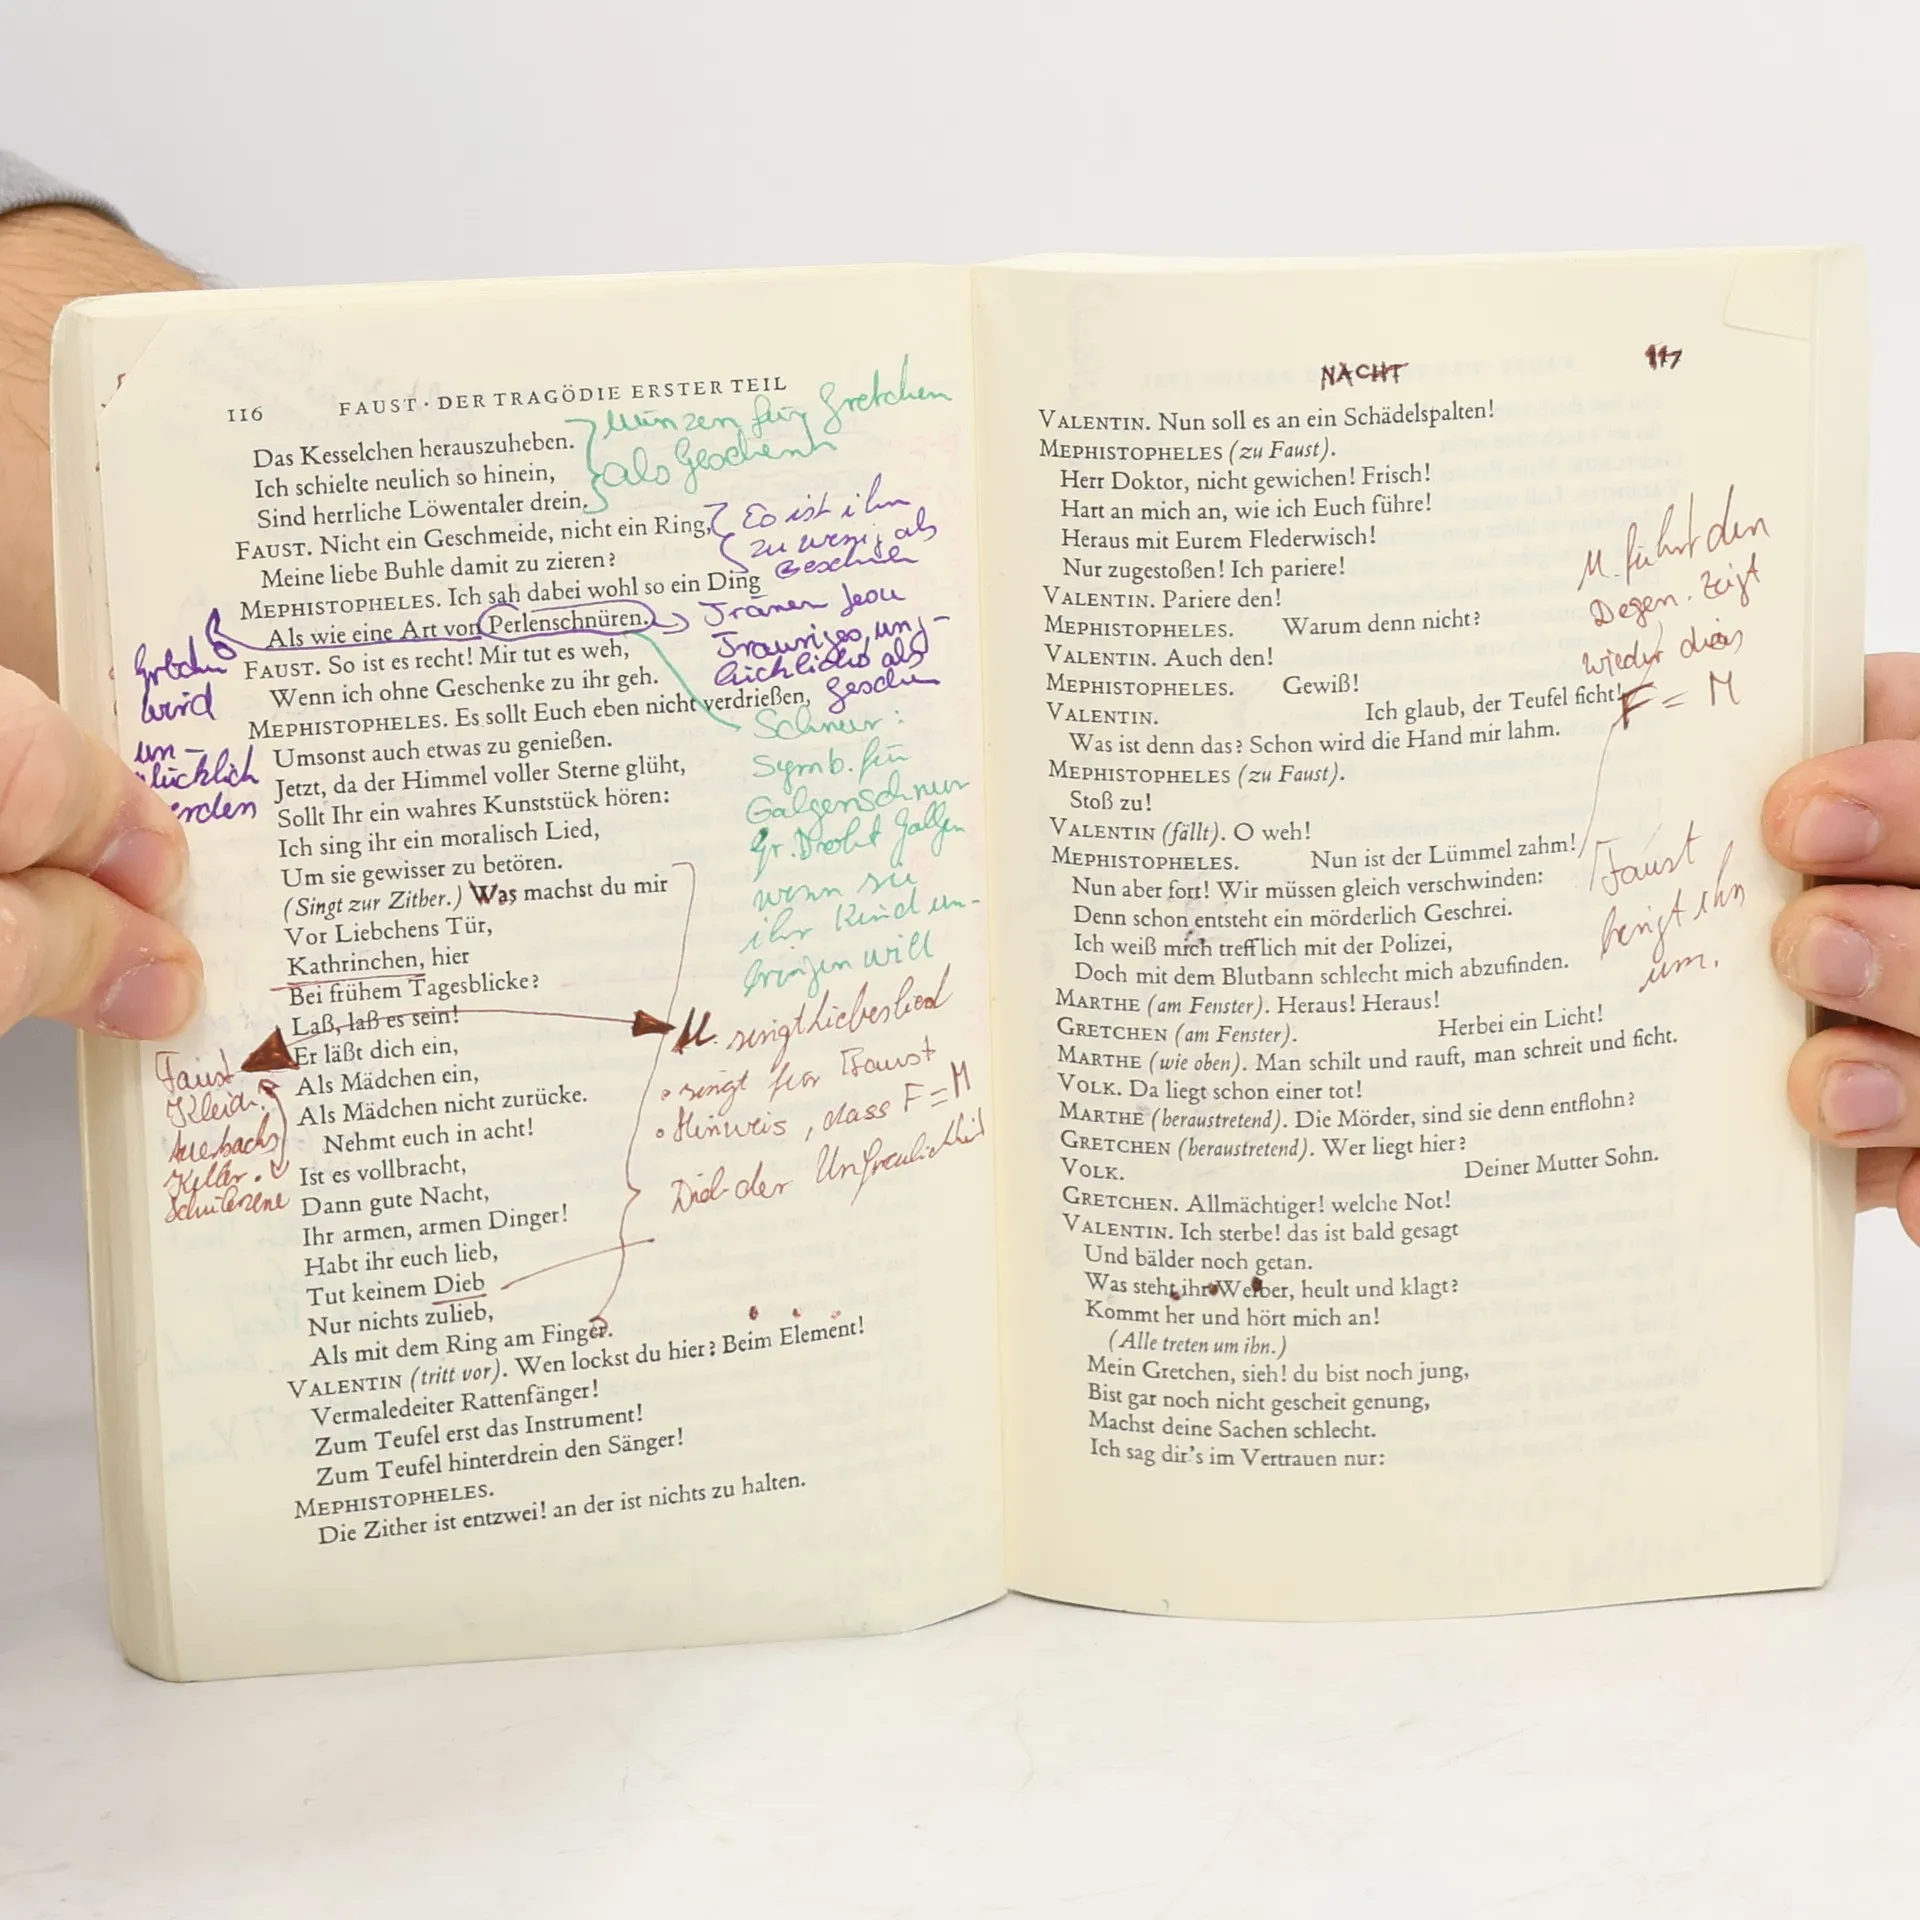 116 FAUST · DER TRAGÖDIE ERSTER TEIL
Das Kesselchen herauszuheben.
Ich schielte neulich so hinein,
Sind herrliche Löwentaler drein.
FAUST. Nicht ein Geschmeide, nicht ein Ring,
Meine liebe Buhle damit zu zieren?
MEPHISTOPHELES. Ich sah dabei wohl so ein Ding
Als wie eine Art von Perlenschnüren.
FAUST. So ist es recht! Mir tut es weh,
Wenn ich ohne Geschenke zu ihr geh.
MEPHISTOPHELES. Es sollt Euch eben nicht verdrießen,
Umsonst auch etwas zu genießen.
Jetzt, da der Himmel voller Sterne glüht,
Sollt Ihr ein wahres Kunststück hören:
Ich sing ihr ein moralisch Lied,
Um sie gewisser zu betören.
(Singt zur Zither.) Was machst du mir
Vor Liebchens Tür,
Kathrinchen, hier
Bei frühem Tagesblicke?
Laß, laß es sein!
Er läßt dich ein,
Als Mädchen ein,
Als Mädchen nicht zurücke.
Nehmt euch in acht!
Ist es vollbracht,
Dann gute Nacht,
Ihr armen, armen Dinger!
Habt ihr euch lieb,
Tut keinem Dieb
Nur nichts zulieb,
Als mit dem Ring am Finger.
VALENTIN (tritt vor). Wen lockst du hier? Beim Element!
Vermaledeiter Rattenfänger!
Zum Teufel erst das Instrument!
Zum Teufel hinterdrein den Sänger!
MEPHISTOPHELES.
Die Zither ist entzwei! an der ist nichts zu halten.
Münzen für Gretchen
als Geschenk
Es ist ihm
zu wenig als
Geschenk
Tränen
Trauriges, ung-
lückliches als
Geschenk
Gretchen
wird
un-
glücklich
werden
Schnur:
Symb. für
Galgenschnur
Gr. Droht Galgen
wenn sie
ihr Kind um-
bringen will
M. singt Liebeslied
singt für Faust
Hinweis, dass F = M
Dieb der
Faust
Auerbachs
Keller.
Schülerszene
NACHT 117
VALENTIN. Nun soll es an ein Schädelspalten!
MEPHISTOPHELES (zu Faust).
Herr Doktor, nicht gewichen! Frisch!
Hart an mich an, wie ich Euch führe!
Heraus mit Eurem Flederwisch!
Nur zugestoßen! Ich pariere!
VALENTIN. Pariere den!
MEPHISTOPHELES. Warum denn nicht?
VALENTIN. Auch den!
MEPHISTOPHELES. Gewiß!
VALENTIN. Ich glaub, der Teufel ficht!
Was ist denn das? Schon wird die Hand mir lahm.
MEPHISTOPHELES (zu Faust).
Stoß zu!
VALENTIN (fällt). O weh!
MEPHISTOPHELES. Nun ist der Lümmel zahm!
Nun aber fort! Wir müssen gleich verschwinden:
Denn schon entsteht ein mörderlich Geschrei.
Ich weiß mich trefflich mit der Polizei,
Doch mit dem Blutbann schlecht mich abzufinden.
MARTHE (am Fenster). Heraus! Heraus!
GRETCHEN (am Fenster). Herbei ein Licht!
MARTHE (wie oben). Man schilt und rauft, man schreit und ficht.
VOLK. Da liegt schon einer tot!
MARTHE (heraustretend). Die Mörder, sind sie denn entflohn?
GRETCHEN (heraustretend). Wer liegt hier?
VOLK. Deiner Mutter Sohn.
GRETCHEN. Allmächtiger! welche Not!
VALENTIN. Ich sterbe! das ist bald gesagt
Und bälder noch getan.
Was steht ihr Weiber, heult und klagt?
Kommt her und hört mich an!
(Alle treten um ihn.)
Mein Gretchen, sieh! du bist noch jung,
Bist gar noch nicht gescheit genung,
Machst deine Sachen schlecht.
Ich sag dir's im Vertrauen nur:
M. führt den
Degen. Zeigt
wieder dass
F = M
Faust
bringt ihn
um.